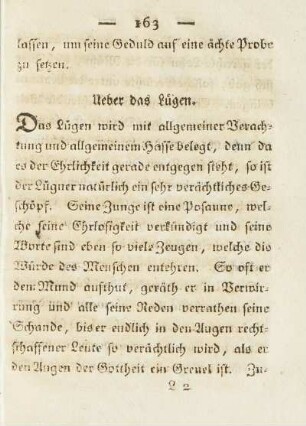 — 163 —
lassen, um seine Geduld auf eine ächte Probe
zu setzen.
Ueber das Lügen.
Das Lügen wird mit allgemeiner Verach-
tung und allgemeinem Hasse belegt, denn da
es der Ehrlichkeit gerade entgegen steht, so ist
der Lügner natürlich ein sehr verächtliches Ge-
schöpf. Seine Zunge ist eine Posaune, wel-
che seine Ehrlosigkeit verkündigt und seine
Worte sind eben so viele Zeugen, welche die
Würde des Menschen entehren. So oft er
den Mund aufthut, geräth er in Verwir-
rung und alle seine Reden verrathen seine
Schande, bis er endlich in den Augen recht-
schaffener Leute so verächtlich wird, als er
den Augen der Gottheit ein Greuel ist. Zu-
L 2